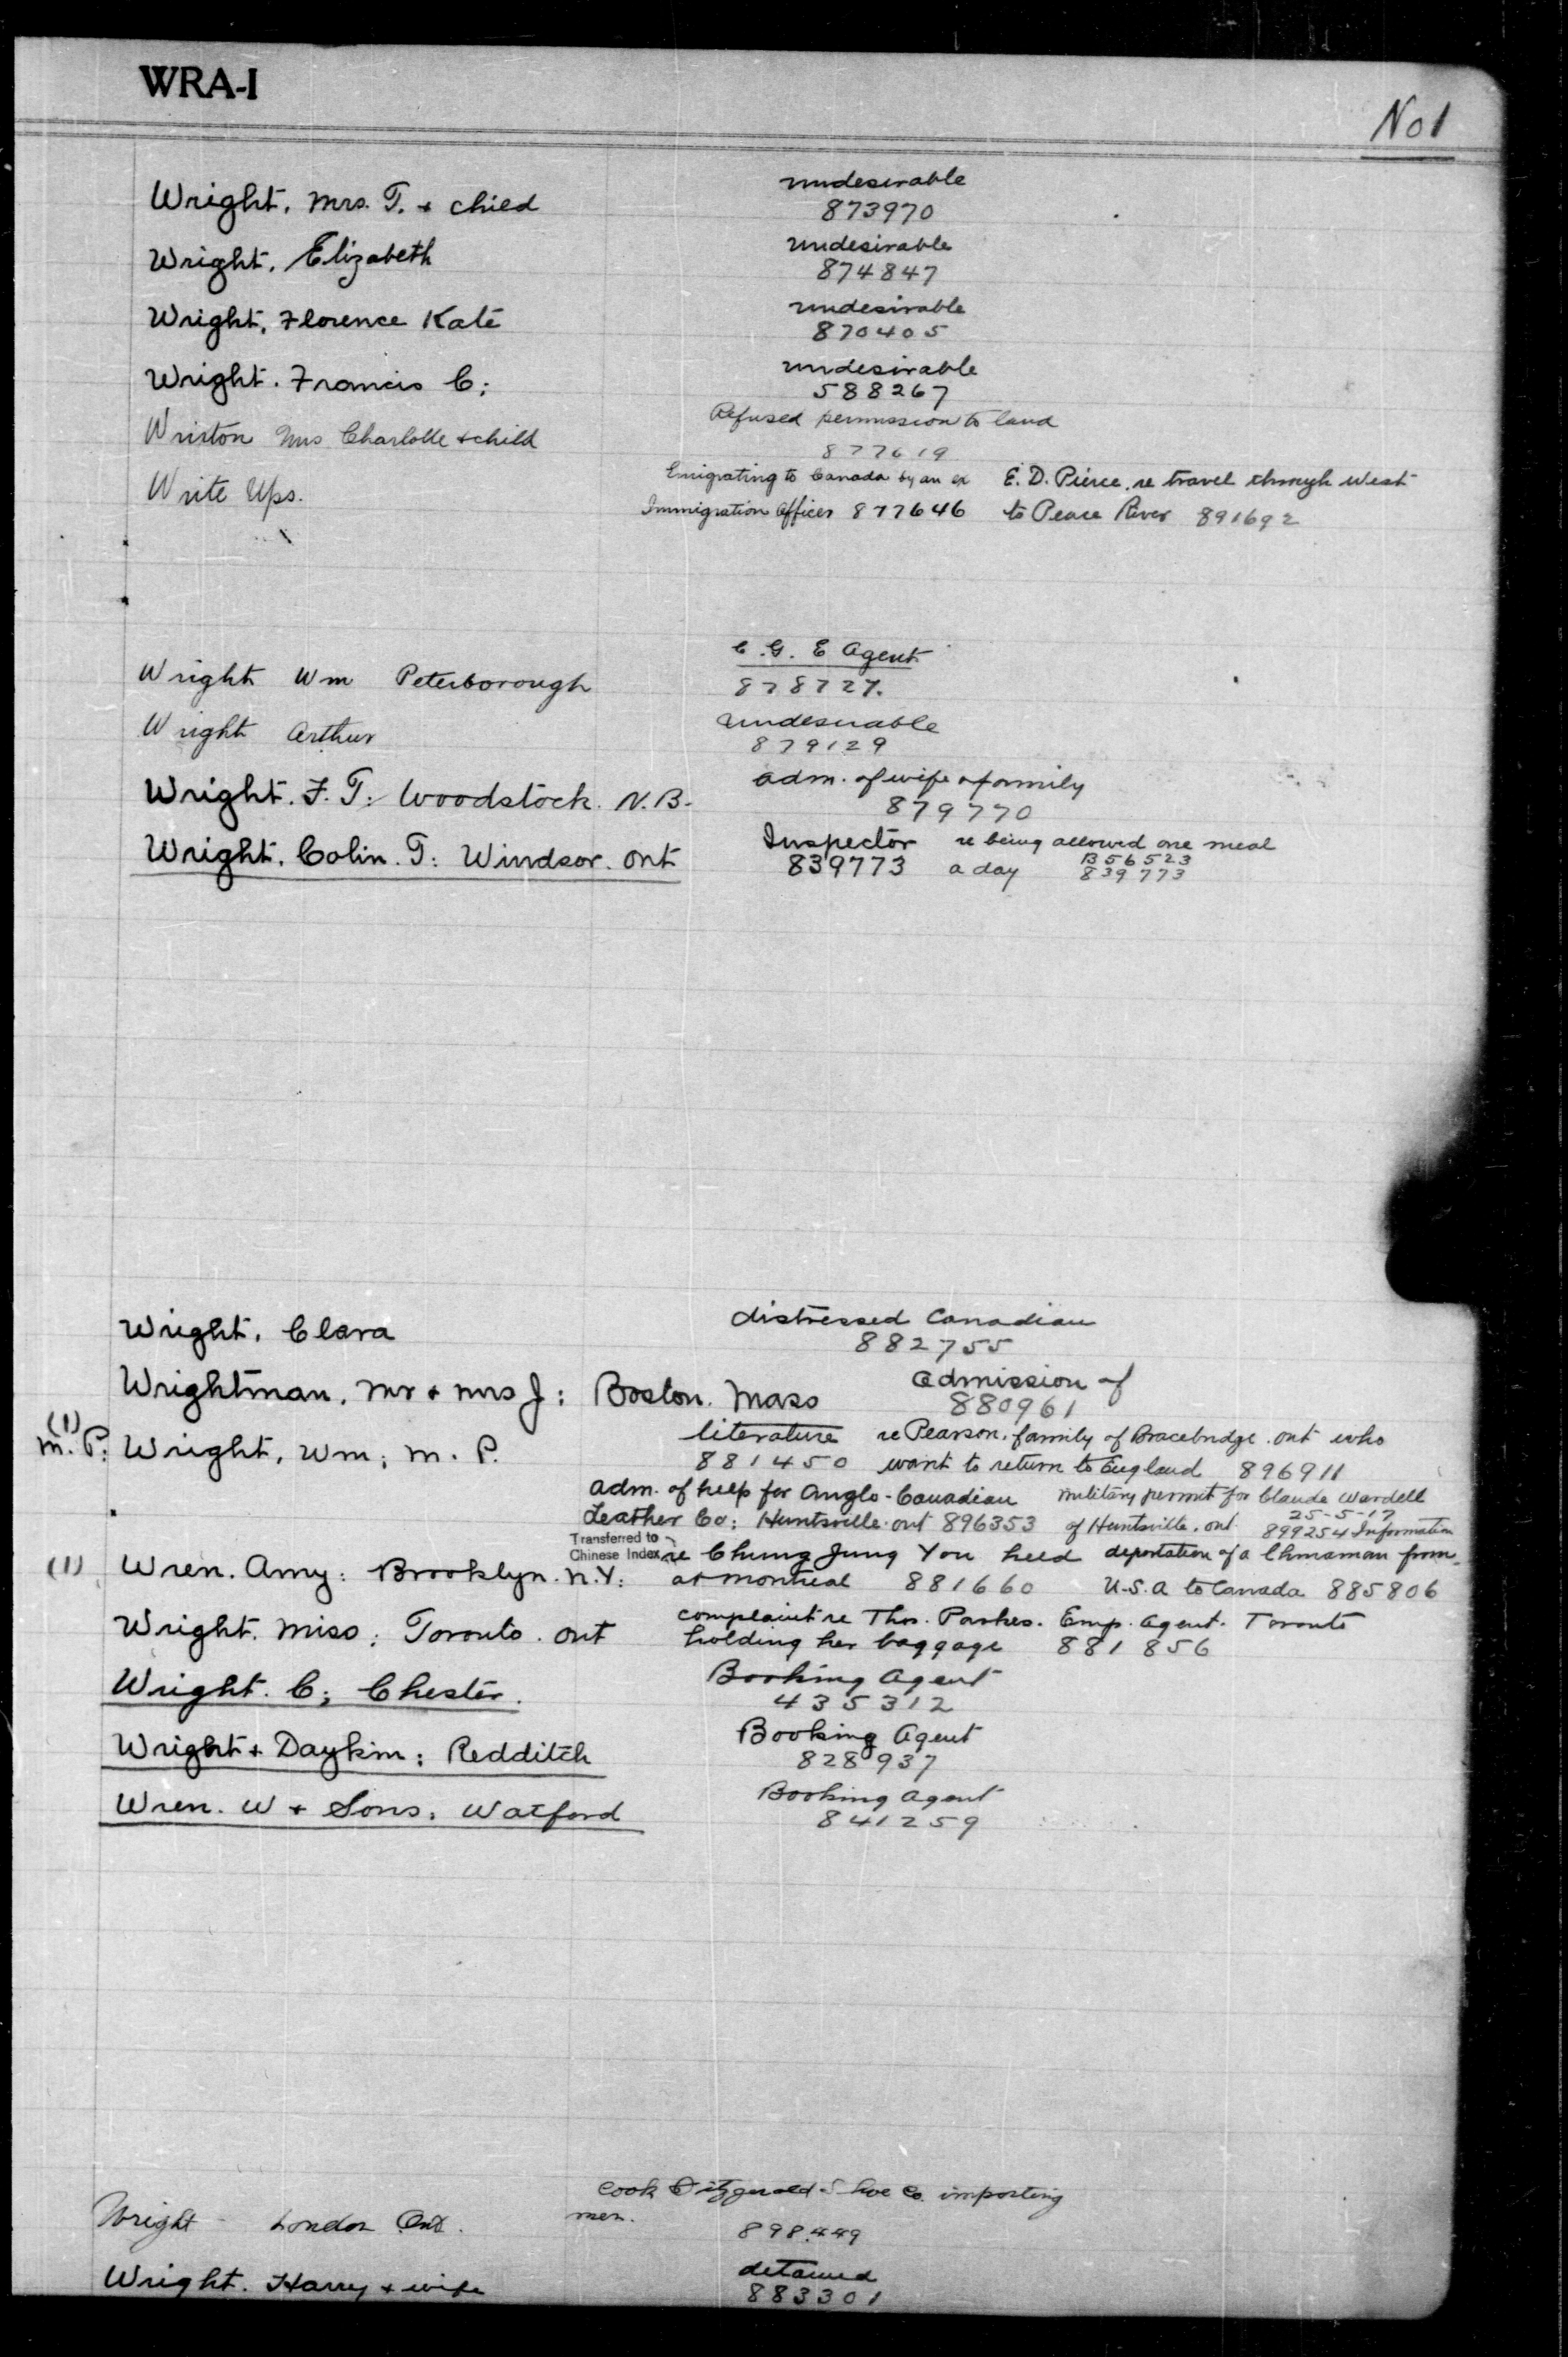 WRA-I
No 1
Wright, Mrs. T. + child undesirable
873970
Wright, Elizabeth undesirable
874847
Wright, Florence Kate undesirable
870405
Wright. Francis C; undesirable
588267
Wriston Mrs Charlotte + child Refused permission to land
877619
Write Ups. Emigrating to Canada by an ex E. D. Pierce. re travel through West
Immigration Officer 877646 to Peace River 891692
Wright Wm Peterborough C. G. E Agent
878727.
Wright Arthur undesirable
879129
Wright. F. T: Woodstock. N.B. adm. of wife + family
879770
Wright. Colin. T: Windsor. Ont Inspector re being allowed one meal
839773 a day B56523
839773
Wright, Clara distressed Canadian
882755
Wrightman. Mr + Mrs J: Boston. Mass admission of
880961
(1)
M.P: Wright, Wm; M. P. literature re Pearson. family of Bracebridge. Ont who
881450 want to return to England 896911
adm. of help for Anglo-Canadian military permit for Claude Wardell
25-5-17
Leather Co: Huntsville. Ont 896353 of Huntsville. Ont 899254 Information
Transferred to
Chinese Index
(1) Wren. Amy: Brooklyn. N.Y: re Chung Jung You held deportation of a Chinaman from
at Montreal 881660 U.S.A to Canada 885806
Wright. Miss; Toronto. Ont complaint re Thos. Parkes. Emp. Agent. Toronto
holding her baggage 881856
Wright. C; Chester. Booking Agent
435312
Wright + Daykin: Redditch Booking Agent
828937
Wren. W + Sons: Watford Booking Agent
841259
Wright - London Ont. Cook Fitzgerald Shoe Co. importing
men.
898449
Wright. Harry + wife detained
883301